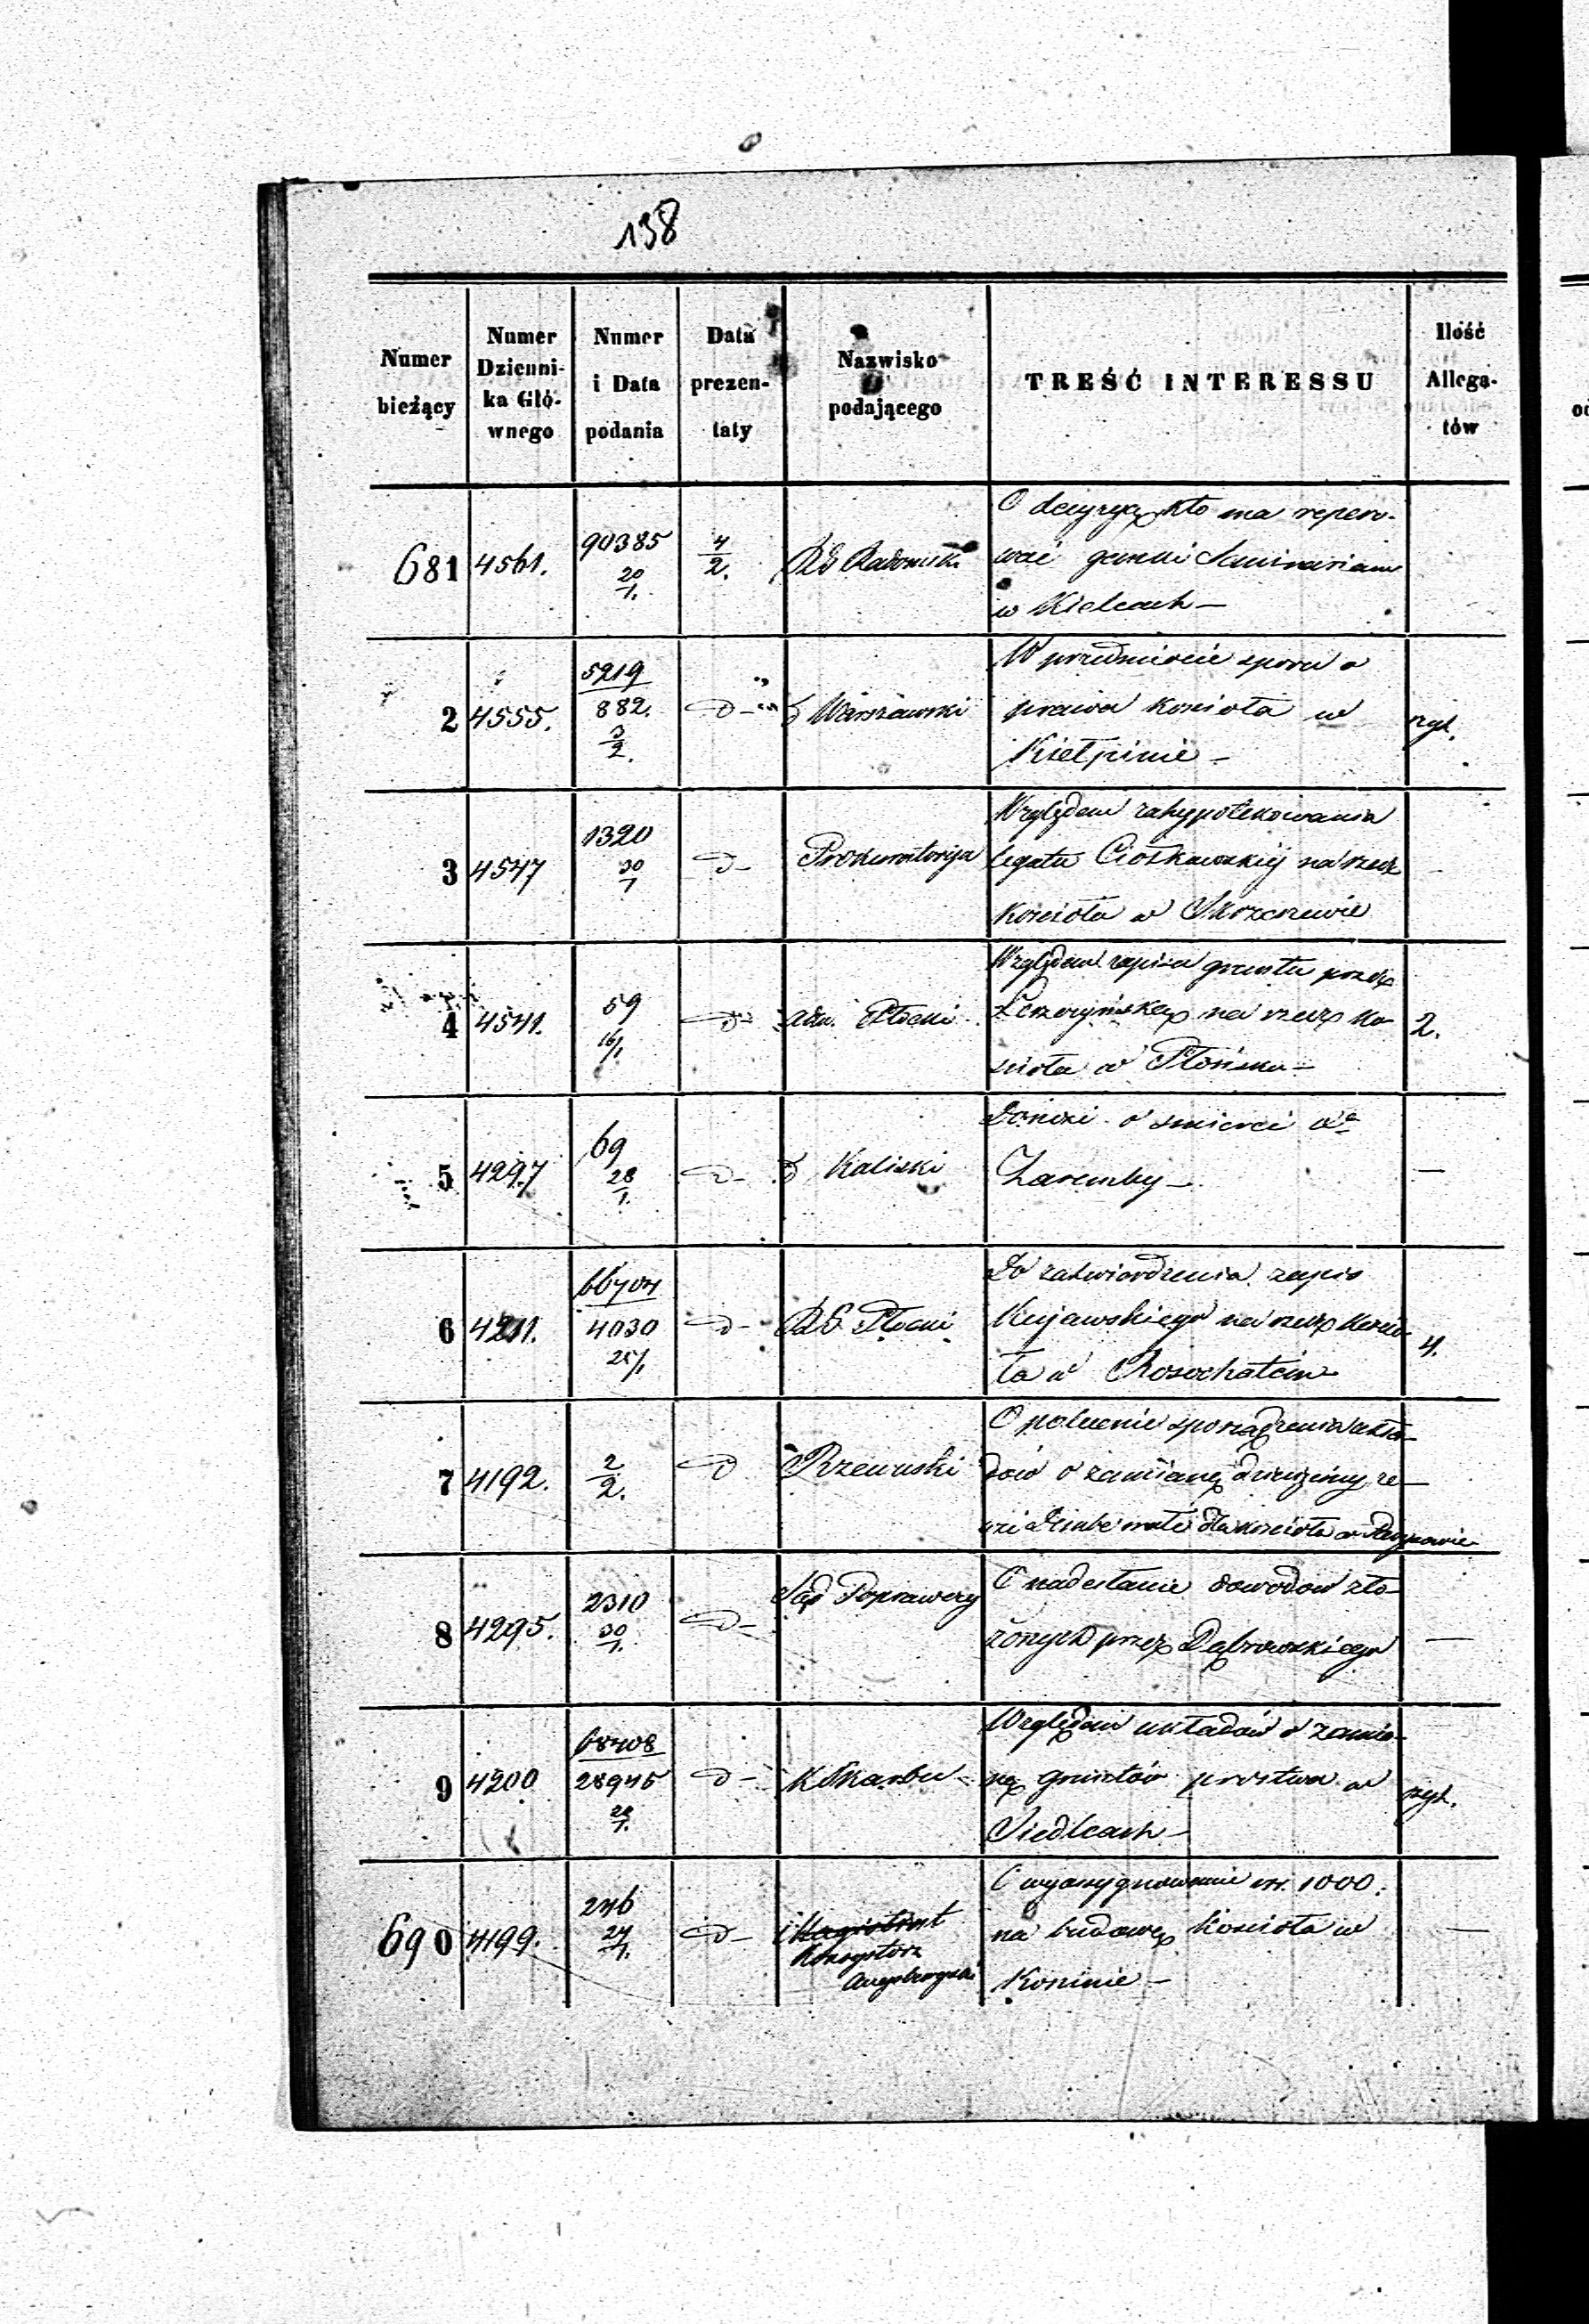 138
Numer bieżący | Numer Dzienni-ka Głó-wnego | Numer i Data podania | Data prezen-taty | Nazwisko podającego | TREŚĆ INTERESSU | Ilość Allega-tów
681 | 4561. | 90385 20/1. | 4/2. | RG Radomski | O decyzyą kto ma repero-
wać gmach Seminarium
w Kielcach —
2 | 4555. | 5219 882. 3/2. | D — | D Warszawski | W przedmiocie sporu o | rył.
prawa kościoła w
Kiełpinie —
3 | 4547 | 1320 30/1 | D — | Prokuratorija | Względem zahypotekowania
legatu Cioskowskij na rzecz
kościoła w Skrzeszewie
4 | 4541. | 59 16/1 | D — | Adm. Płocki | Względem zapisu gruntu przez | 2.
na rzecz ko-
ścioła w Płońsku —
5 | 4297 | 69 28/1. | D — | D Kaliski | Donosi o śmierci Xa | —
Zaremby —
6 | 4211. | 66704 4030 25/1 | D — | RG Płocki | Do zatwierdzenia zapis | 4.
Kujawskiego na rzecz kościo-
ła w Rosochatem
7 | 4192. | 2/2. | D | Rzewuski | O polecenie sporządzenia ukła- | —
dów o zamianę dziesięciny
dla kościoła w
8 | 4295. | 2310 30/1. | D — | Sąd Poprawczy | O nadesłanie dowodów zło- | —
żonych przez Dąbrowskiego
9 | 4200 | 68708 28945 28/1. | D — | K Skarbu — | Względem układów o zamia- | rył.
nę gruntów probstwa w
Siedlcach —
690 | 4199. | 246 27/1. | D — | Magistrat | O wyasygnowanie rsr. 1000. | —
Konsystorz | na budowę kościoła w
Augsburgski | Koninie —